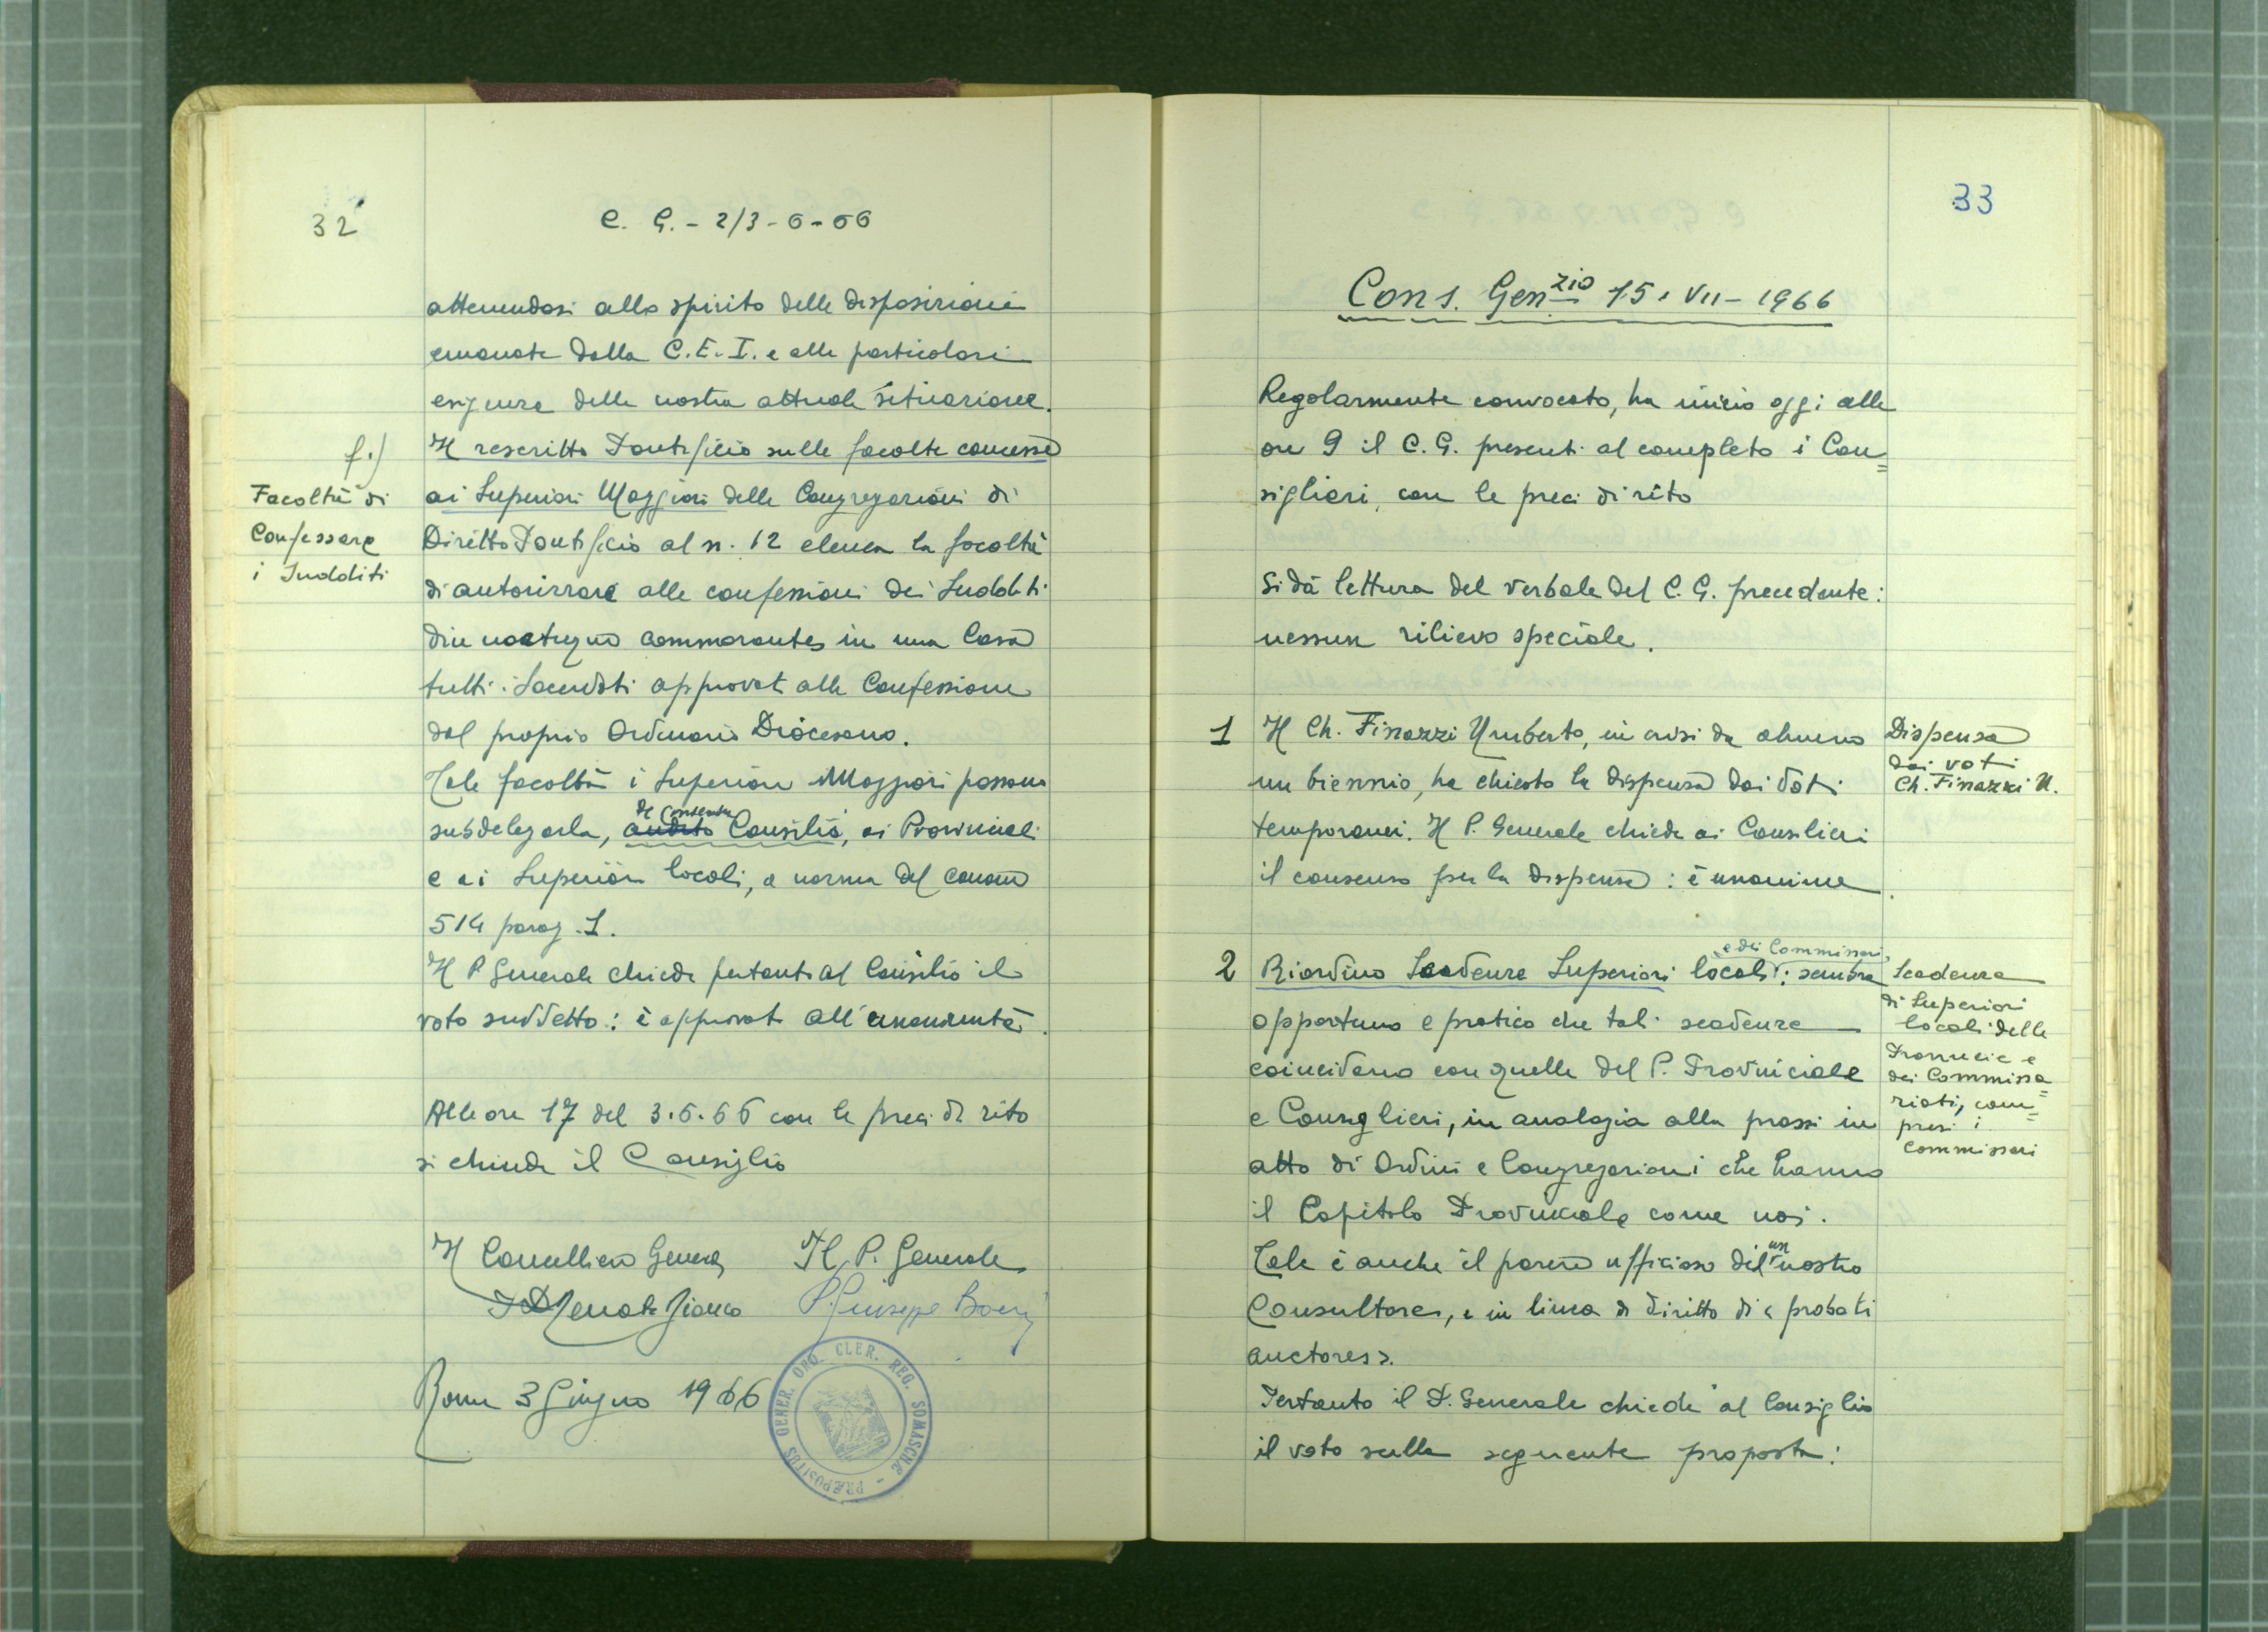 32
C. G. - 2/3-6-66
attenendosi allo spirito delle disposizioni
emanate dalla C.E.I. e alle particolari
esigenze della nostra attuale situazione.
f.)
Facoltà di
Confessare
i Sudditi
Il rescritto Pontificio sulle facoltà concesse
ai Superiori Maggiori delle Congregazioni di
Diritto Pontificio al n. 12 elenca la facoltà
di autorizzare alle confessioni dei Sudditi
diu noctuque commorantes in una Casa
tutti i Sacerdoti approvati alle Confessioni
dal proprio Ordinario Diocesano.
Tale facoltà i Superiori Maggiori possono
de consensu
subdelegarla, audito Consilio, ai Provinciali
e ai Superiori locali, a norma del canone
514 parag. 1.
Il P. Generale chiede pertanto al Consiglio il
voto suddetto: è approvato all'unanimità.
Alle ore 17 del 3.6.66 con le preci di rito
si chiude il Consiglio
Il Cancelliere Generale Il P. Generale
P. Renato Bianco P. Giuseppe Boeri
Roma 3 Giugno 1966
PRÆPOSITUS GENER. ORD. CLER. REG. SOMASCHÆ -
33
Cons. Gen.zio 15-VII-1966
Regolarmente convocato, ha inizio oggi alle
ore 9 il C. G. presenti al completo i Con=
siglieri, con le preci di rito
Si dà lettura del verbale del C. G. precedente:
nessun rilievo speciale.
1 Il Ch. Finazzi Umberto, in crisi da almeno
un biennio, ha chiesto la dispensa dai Voti
temporanei. Il P. Generale chiede ai Consilieri
il consenso per la dispensa: è unanime.
Dispensa
dai voti
Ch. Finazzi U.
e dei Commissari,
2 Riordino Scadenze Superiori locali: sembra
opportuno e pratico che tali scadenze
coincidano con quelle del P. Provinciale
e Consiglieri, in analogia alla prassi in
atto di Ordini e Congregazioni che hanno
il Capitolo Provinciale come noi.
Tale è anche il parere ufficioso di un nostro
Consultore, e in linea di diritto di < probati
auctores >.
Pertanto il P. Generale chiede al Consiglio
il voto sulla seguente proposta:
Scadenza
di Superiori
locali delle
Provincie e
dei Commissa=
riati, com=
presi i
Commissari